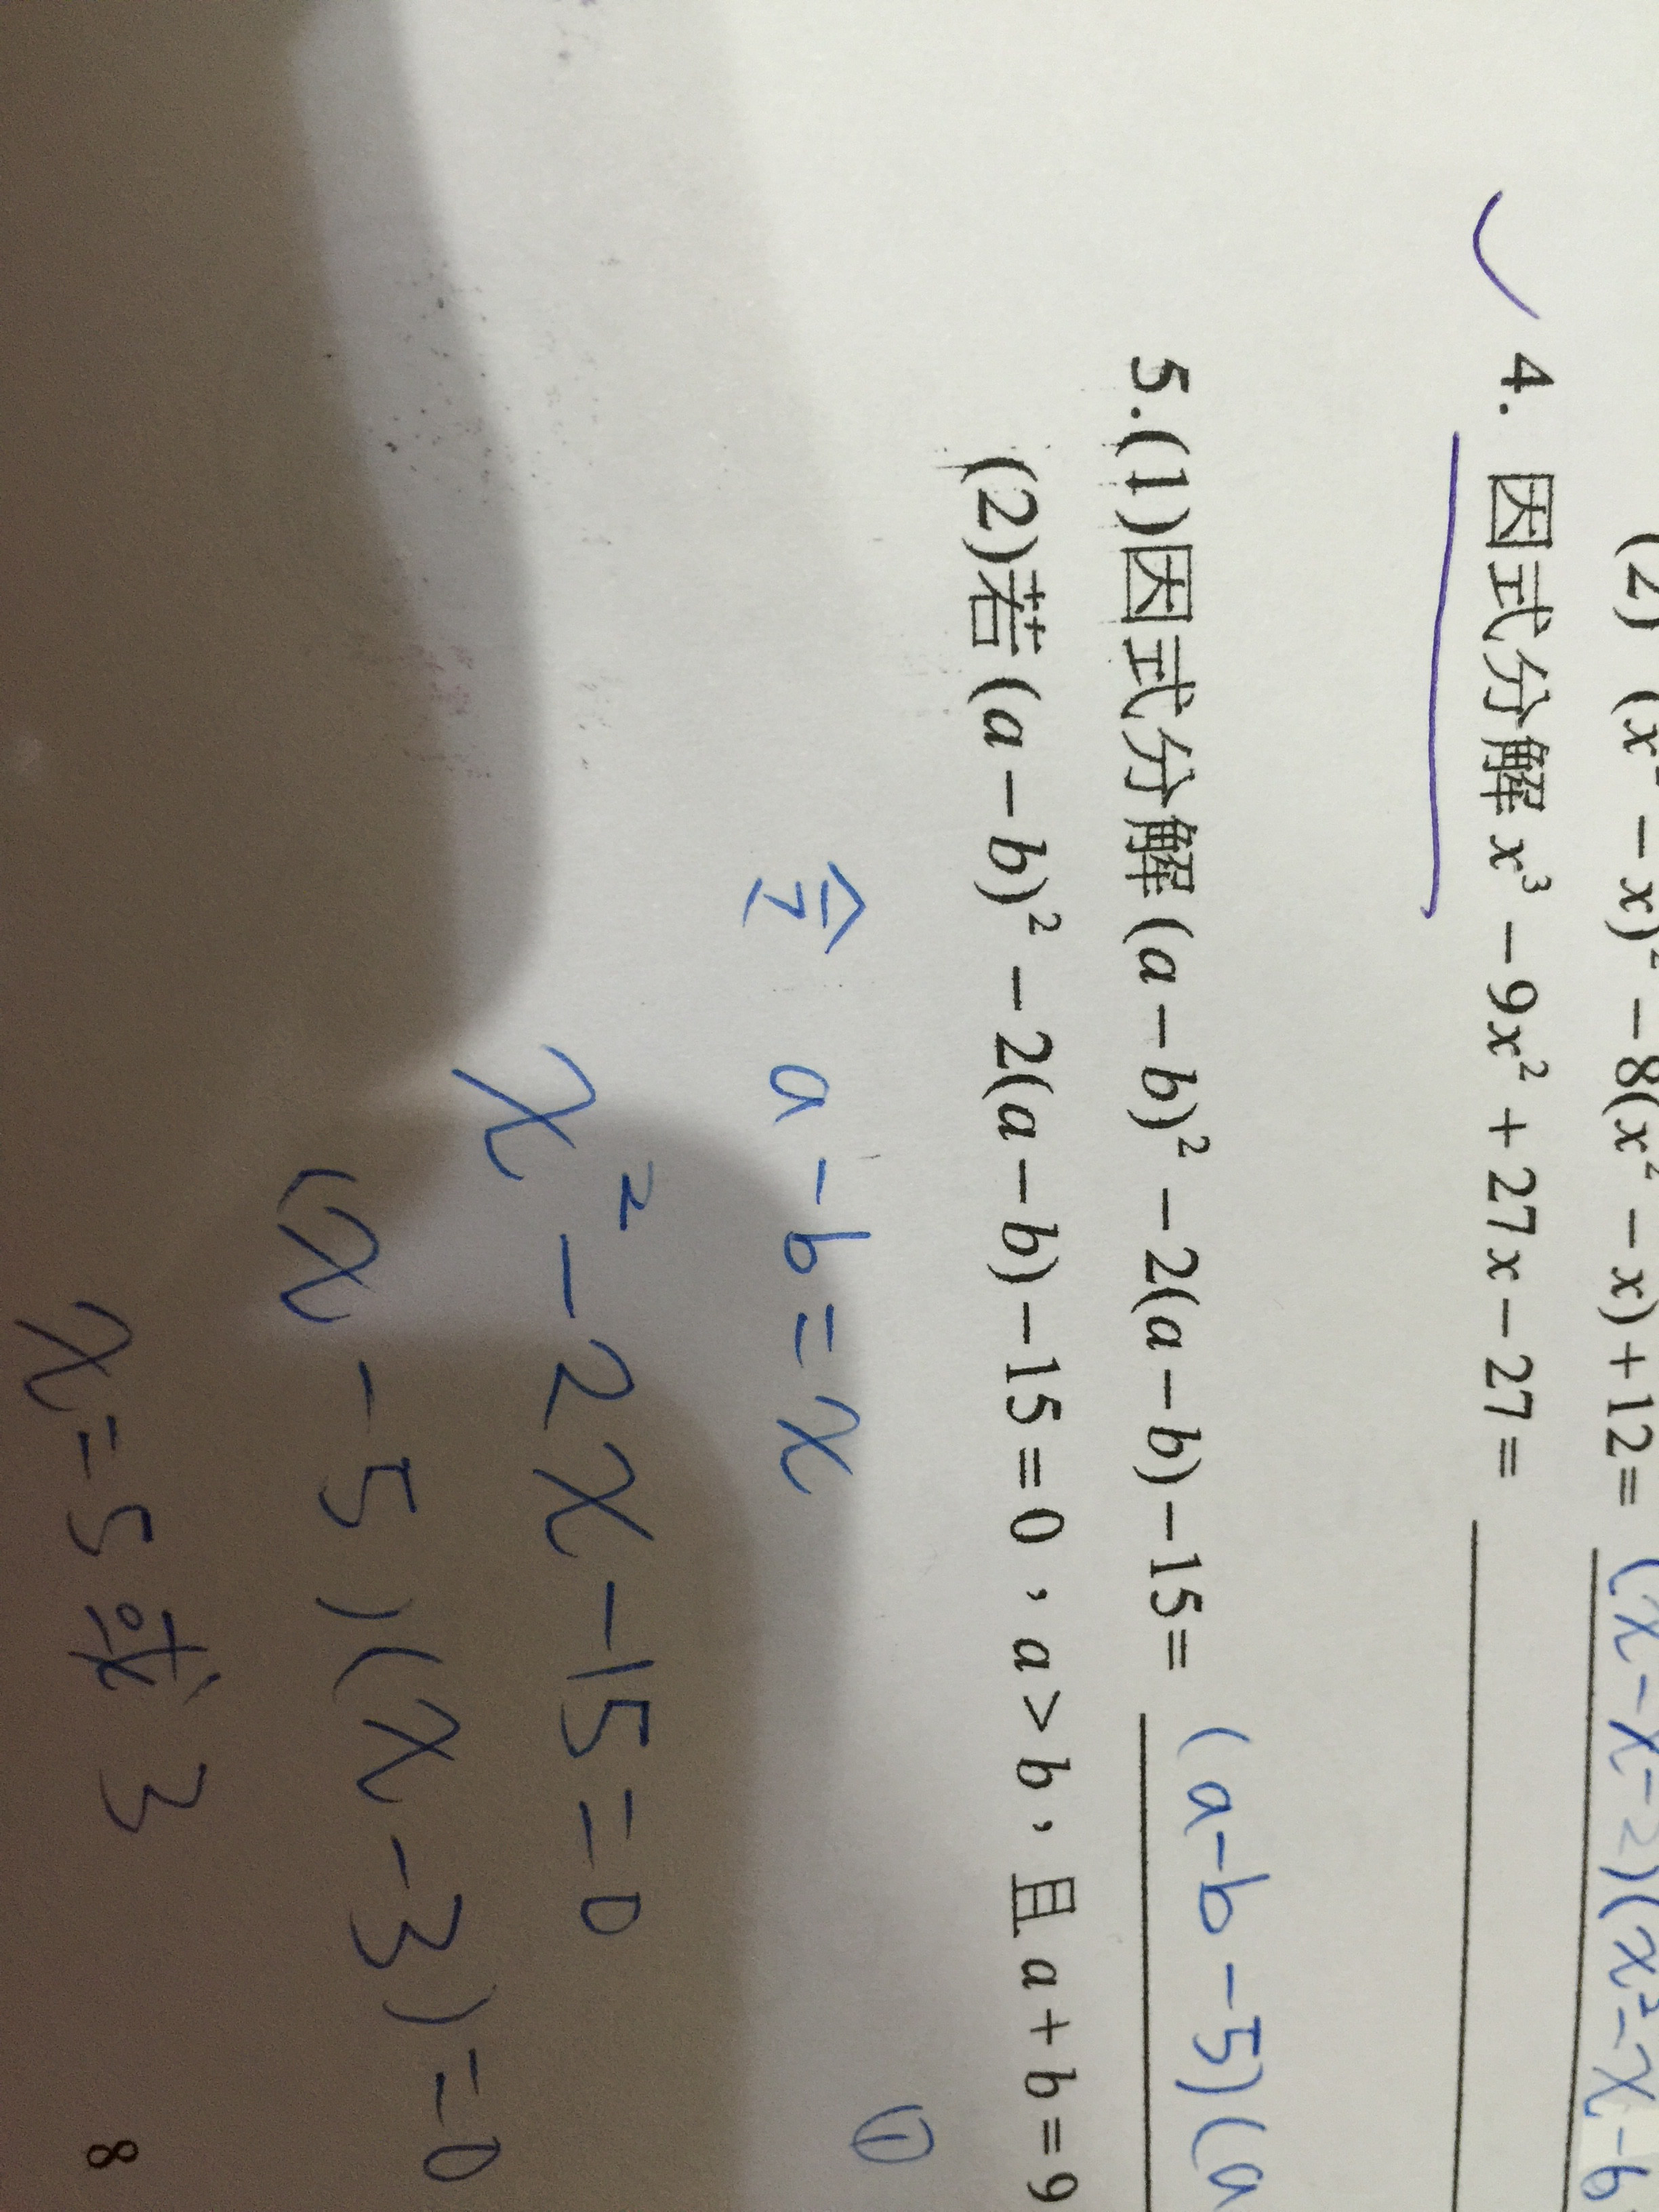 (2) (x² − x)² − 8(x² − x) + 12 = (x − x − 2)(x² − x − 6
4. 因式分解 x³ − 9x² + 27x − 27 =
5.(1)因式分解 (a − b)² − 2(a − b) − 15 = (a-b-5)(a
(2)若 (a − b)² − 2(a − b) − 15 = 0，a > b，且 a + b = 9
①
令 a-b=x
x²-2x-15=0
(x-5)(x-3)=0
x=5或3
8